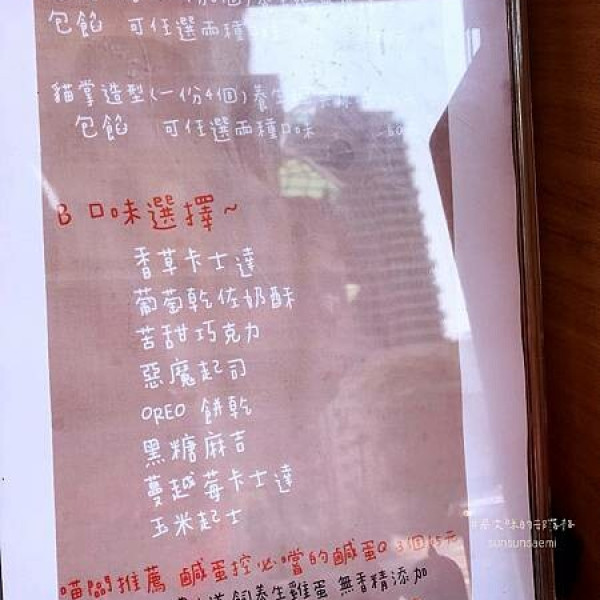 包餡 可任選兩種口味
貓掌造型(一份4個)養生
包餡 可任選兩種口味
B 口味選擇~
香草卡士達
葡萄乾佐奶酥
苦甜巧克力
惡魔起司
OREO 餅乾
黑糖麻吉
蔓越莓卡士達
玉米起士
喵闆推薦 鹹蛋控必嚐的鹹蛋Q 3個45元
飼養生雞蛋 無香精添加
的部落格
sunsunsaemi